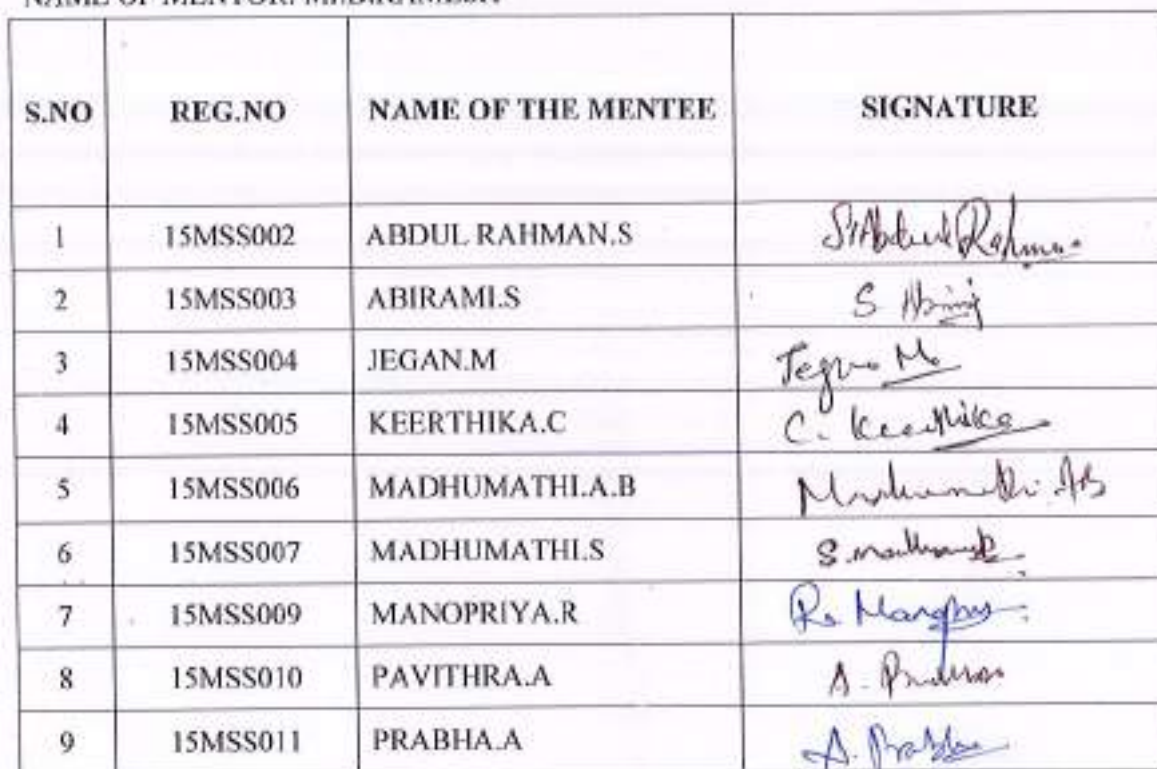 NAME OF MENTOR:
S.NO REG.NO NAME OF THE MENTEE SIGNATURE
1 15MSS002 ABDUL RAHMAN.S S.Abdul Rahman
2 15MSS003 ABIRAMI.S S.
3 15MSS004 JEGAN.M Jegan M
4 15MSS005 KEERTHIKA.C C. Keerthika
5 15MSS006 MADHUMATHI.A.B Madhumathi.AB
6 15MSS007 MADHUMATHI.S S.
7 15MSS009 MANOPRIYA.R R.
8 15MSS010 PAVITHRA.A A.
9 15MSS011 PRABHA.A A. Prabha